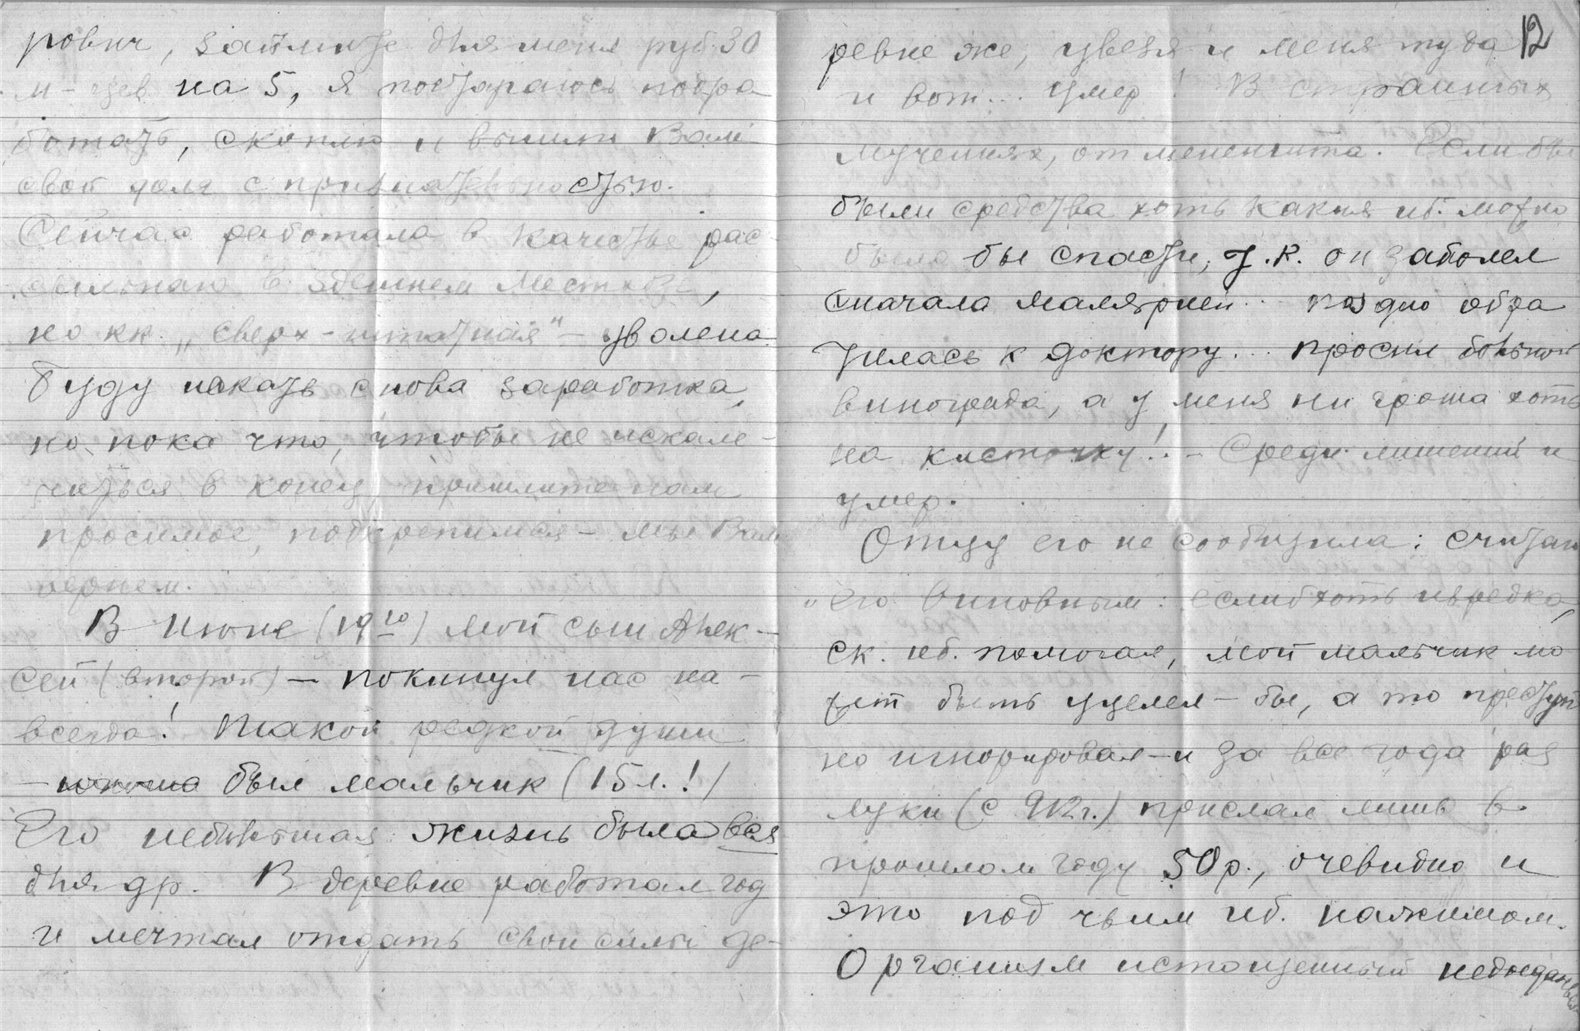 рович, займите для меня руб. 30
м-цев на 5, я постараюсь порабо-
ботать, скоплю и вышлю Вам
свой долг с признательностью.
Сейчас работала в качестве рас-
сыльной в здешнем Местхозе,
но кк. „сверх-штатная" – уволена.
Буду искать снова заработка,
но пока что, чтобы не искале-
читься в конец пришлите нам
просимое, подкрепимся – мы Вам
вернем.
В Июне (19 го) мой сын Алек-
сей (второй) – покинул нас на-
всегда! Такой редкой души
– был мальчик (15 л.!)
Его небольшая жизнь была вся
для др. В деревне работал год
и мечтал отдать свои силы де-
12
ревне же, увезя и меня туда
и вот... умер! В страшных
мучениях, от менингита. Если бы
были средства хоть какия иб. можно
было бы спасти, т.к. он заболел
сначала малярией.. поздно обра
тилась к доктору... просил больной
винограда, а у меня ни гроша хоть
на кисточку!. – Среди лишений и
умер.
Отцу его не сообщила: считаю
его виновным: еслиб хоть изредка,
ск. иб. помогая, мой мальчик мо
жет быть уцелел – бы, а то преступ
но игнорировал – и за все года раз
луки (с 912 г.) прислал лишь в
прошлом году 50 р., очевидно и
это под чьим иб. нажимом.
Организм истощенный недоеданьем